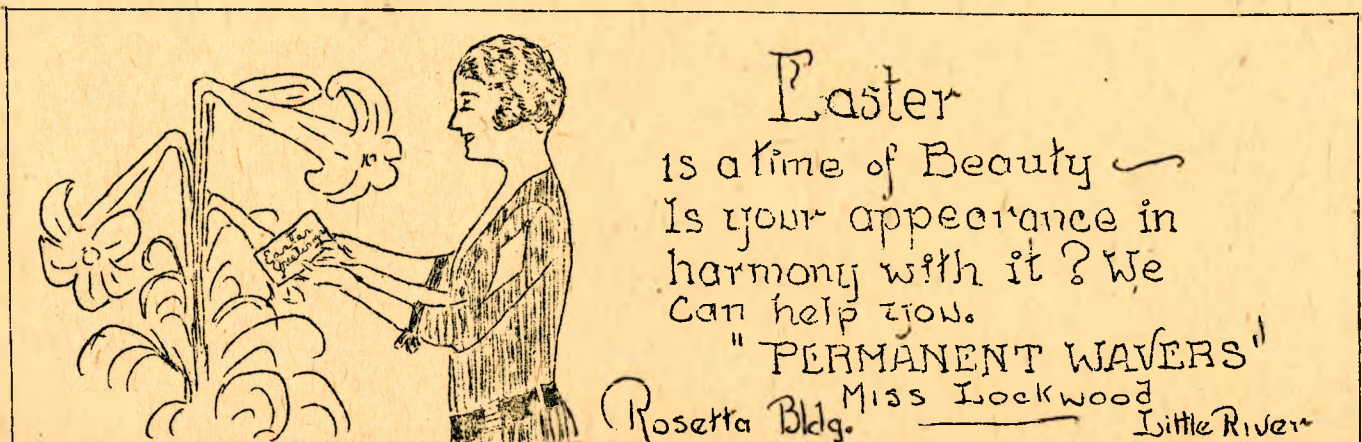 Easter
Greetings
Easter
is a time of Beauty —
Is your appearance in
harmony with it? We
Can help you.
"PERMANENT WAVERS"
Miss Lockwood
Rosetta Bldg. Little River